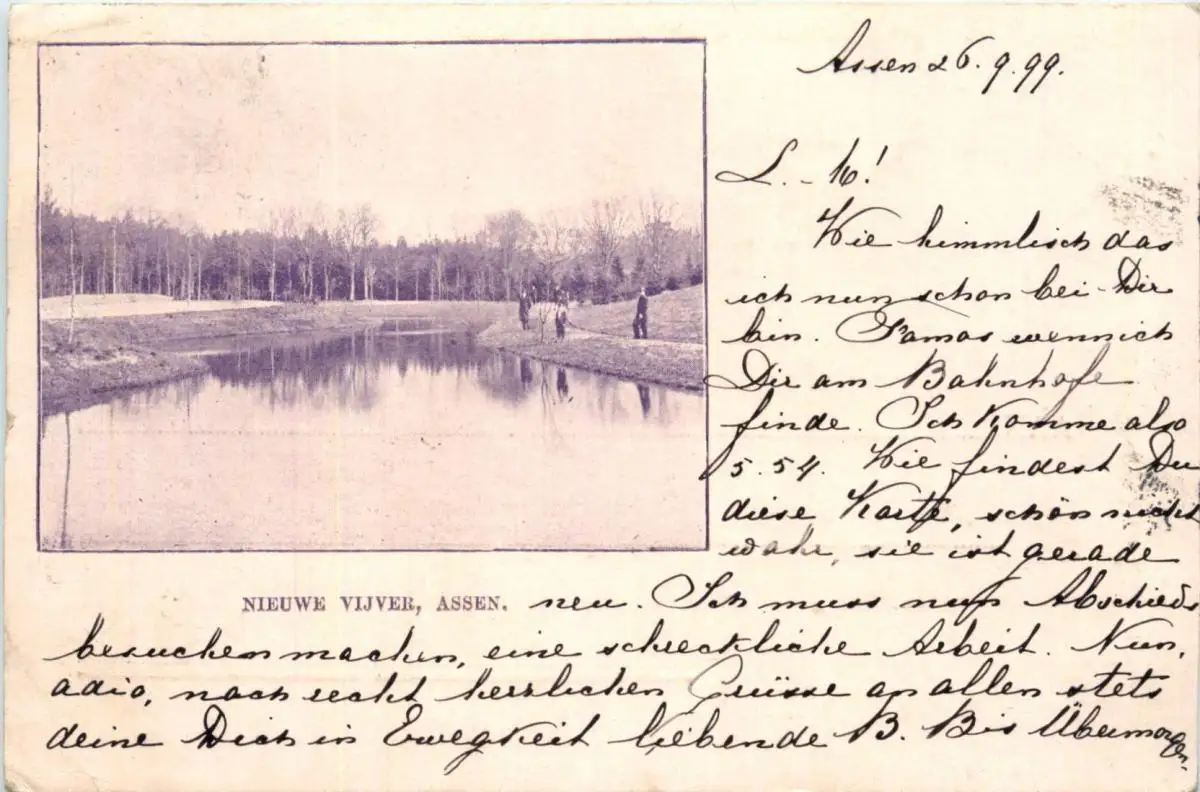 Assen 26.9.99.
L. - M!
Wie himmlisch das
ich nun schon bei Dir
bin. Famos wenn ich
Dir am Bahnhofe
finde. Ich komme also
5.54. Wie findest Du
diese Karte, schön nicht
wahr, sie ist gerade
NIEUWE VIJVER, ASSEN.
neu. Ich muss nun Abschieds
besuchen machen, eine schreckliche Arbeit. Nun,
adio, noch recht herzlichen Grüsse an allen stets
deine Dich in Ewegkeit liebende B. Bis Übermorgen.